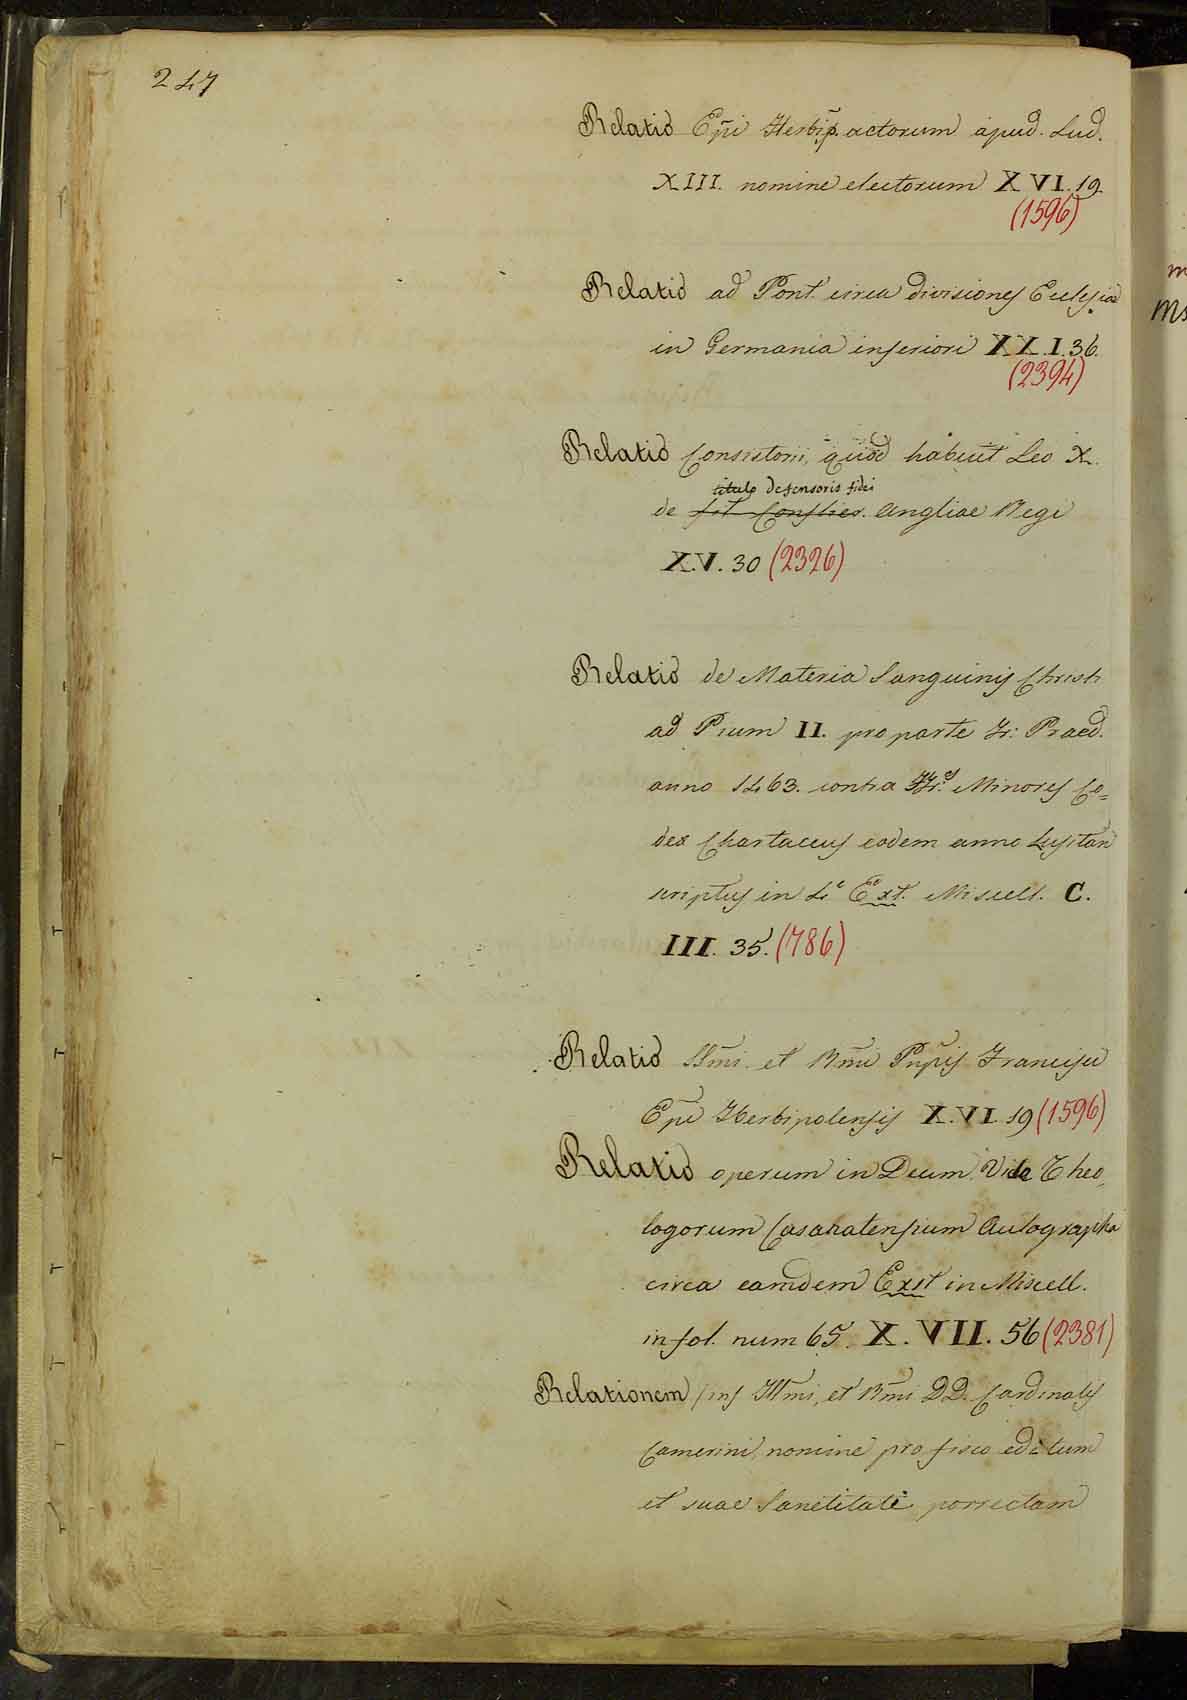 247
Relatio Ep̃i Herbip. actorum apud. Lud.
XIII. nomine electorum XVI. 19.
(1596)
Relatio ad Pont. circa divisiones Ecclesiae
in Germania inferiori XX.I.36.
(2394)
Relatio Consistorii, quod habuit Leo X.
titulo defensoris fidei
de Angliae Regi
X.V. 30 (2326)
Relatio de Materia Sanguinis Christi
ad Pium II. pro parte Fr: Praed.
anno 1463. contra Fr.es Minores Co=
dex Chartaceus eodem anno Lusitan
scriptus in 4.º Ext. Miscell. C.
III. 35. (786)
Relatio Illm̃i. et Rm̃i Pñpis Francisci
Ep̃i Herbipolensis X.VI. 19 (1596)
Relatio operum in Deum. Vide Theo,
logorum Casanatensium Autographa
circa eamdem Exst in Miscell.
in fol. num 65. X. VII. 56 (2381)
Relationem Illm̃i, et Rm̃i DD. Cardinalis
Camerini, nomine pro fisco editum
et suae Sanctitati porrectam
m
Ms